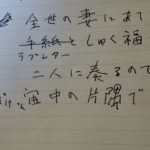 全世の妻にあて
手紙としゅく福
ラブレター
二人に奏るので
宙中の片隅で